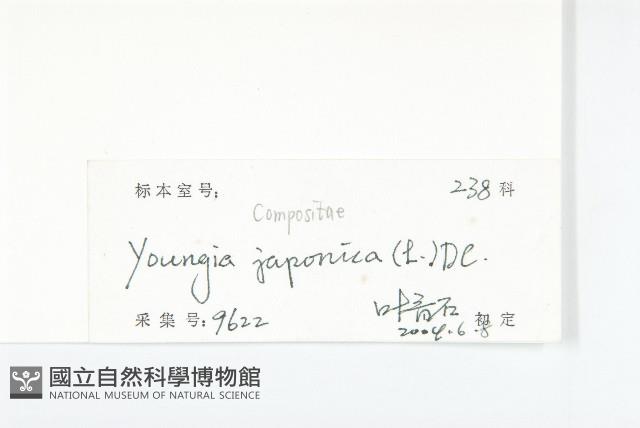 标本室号: 238 科
Compositae
Youngia japonica (L.) DC.
采集号: 9622 叶 石 初 定
2004.6.8
國立自然科學博物館
NATIONAL MUSEUM OF NATURAL SCIENCE